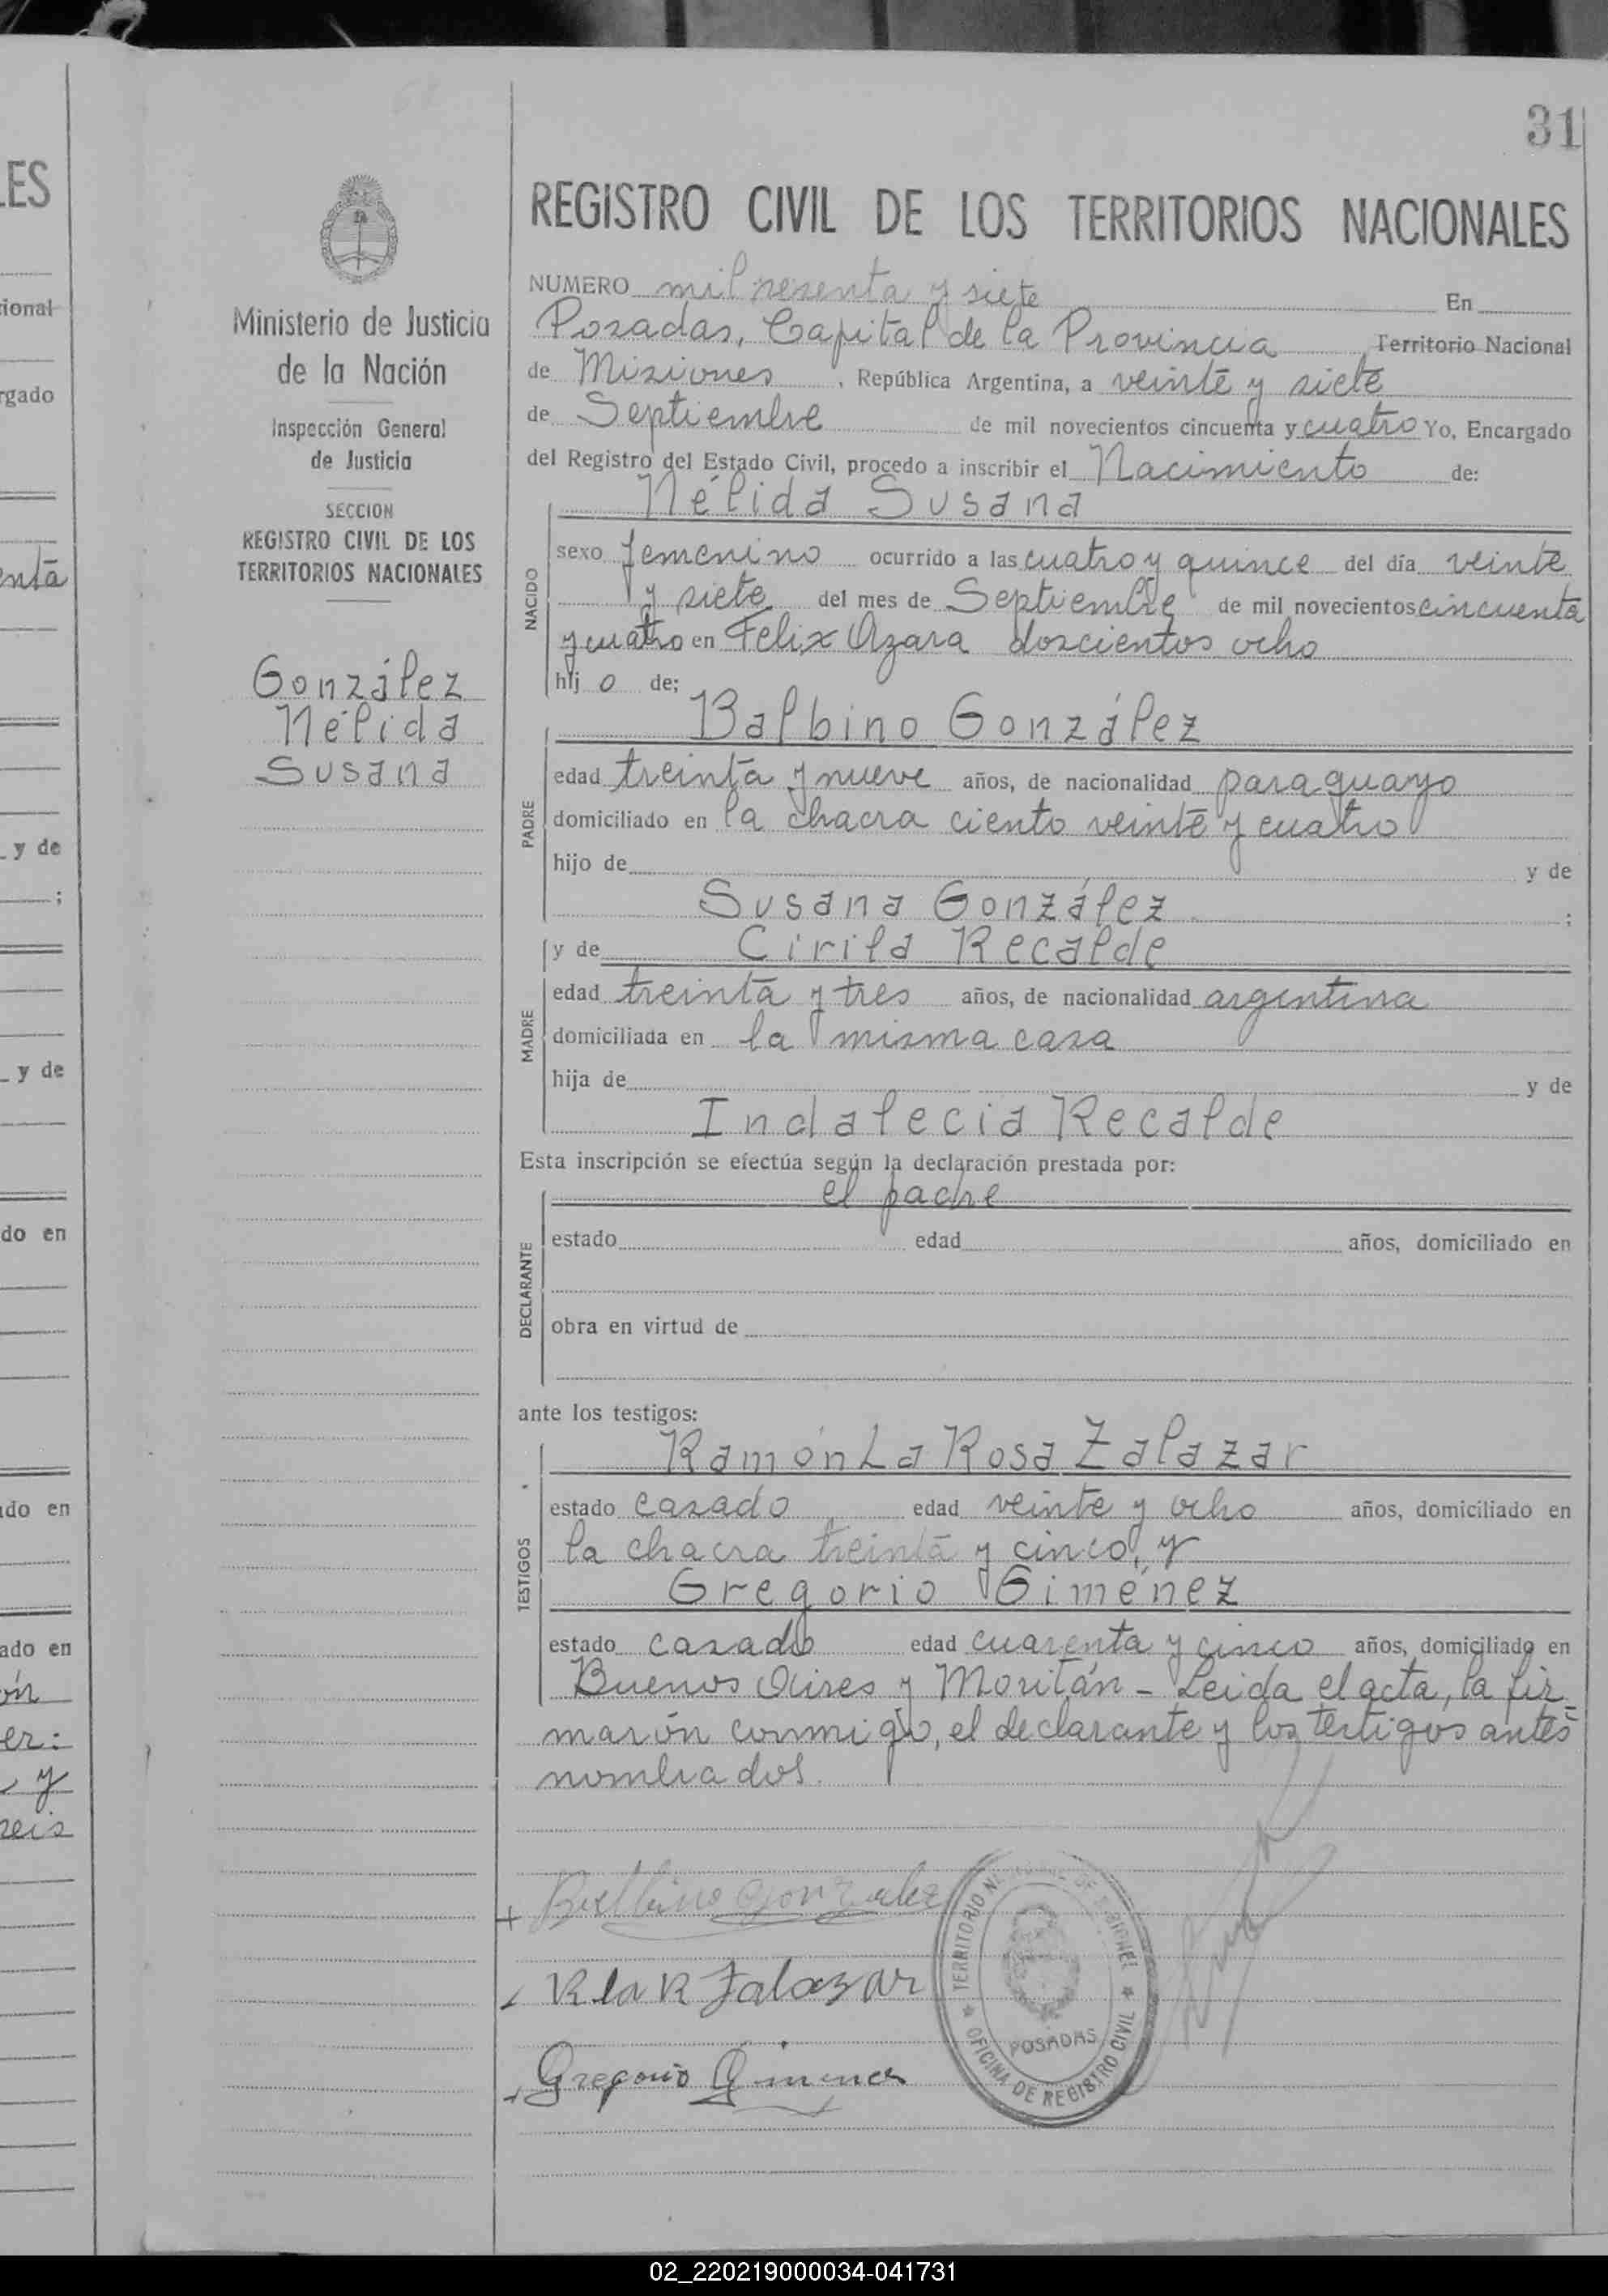 31
LES
cional
rgado
entā
y de
;
y de
do en
ado en
ado en
ón
er:
y
seis
Ministerio de Justicia
de la Nación
Inspección General
de Justicia
SECCION
REGISTRO CIVIL DE LOS
TERRITORIOS NACIONALES
González
Nélida
Susana
REGISTRO CIVIL DE LOS TERRITORIOS NACIONALES
NUMERO mil sesenta y siete En
Posadas, Capital de la Provincia Territorio Nacional
de Misiones, República Argentina, a veinte y siete
de Septiembre de mil novecientos cincuenta y cuatro Yo, Encargado
del Registro del Estado Civil, procedo a inscribir el Nacimiento de:
Nélida Susana
NACIDO
sexo femenino ocurrido a las cuatro y quince del día veinte
y siete del mes de Septiembre de mil novecientos cincuenta
y cuatro en Felix Azara doscientos ocho
hij o de:
Balbino González
PADRE
edad treinta y nueve años, de nacionalidad paraguayo
domiciliado en la chacra ciento veinte y cuatro
hijo de y de
Susana González ;
y de Cirila Recalde
MADRE
edad treinta y tres años, de nacionalidad argentina
domiciliada en la misma casa
hija de y de
Indalecia Recalde
Esta inscripción se efectúa según la declaración prestada por:
el padre
DECLARANTE
estado edad años, domiciliado en
obra en virtud de
ante los testigos:
Ramón La Rosa Zalazar
TESTIGOS
estado casado edad veinte y ocho años, domiciliado en
la chacra treinta y cinco, y
Gregorio Giménez
estado casado edad cuarenta y cinco años, domiciliado en
Buenos Aires y Moritán - Leida el acta, la fir=
marón conmigo, el declarante y los testigos antes
nombrados.
Balbino Gonzalez
R la R Zalazar
Gregorio Gimenez
TERRITORIO NACIONAL DE MISIONES
POSADAS
OFICINA DE REGISTRO CIVIL
02_220219000034-041731